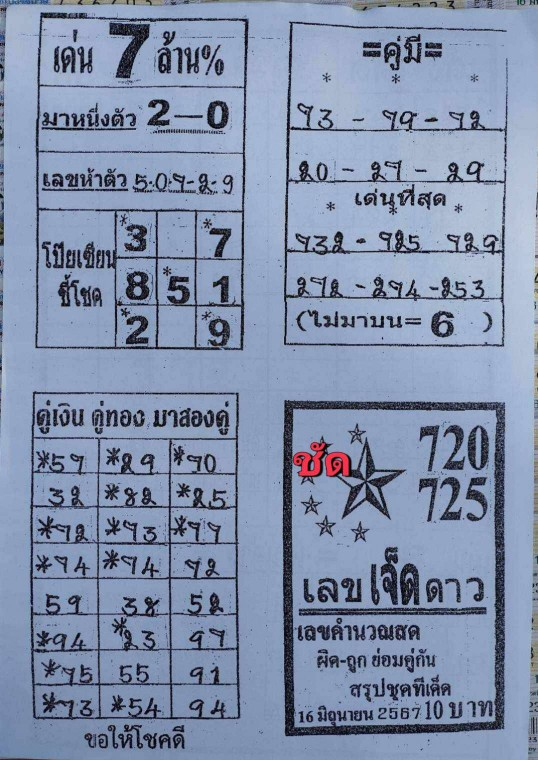 เด่น 7 ล้าน%
มาหนึ่งตัว 2-0
เลขห้าตัว 5-0-7-2-9
โป๊ยเซียน
ชี้โชค
*3 *7
8 *5 1
*2 *9
=คู่มี=
* * *
73 - 79 - 72
20 - 27 - 29
เด่นที่สุด
* * *
732 - 725 729
272 - 274 - 253
(ไม่มาบน= 6 )
คู่เงิน คู่ทอง มาสองคู่
*57 *29 *70
32 *82 *25
*72 *73 *77
*74 *74 72
59 38 52
*94 *23 97
*75 55 91
*73 *54 94
ขอให้โชคดี
ชัด
720
725
เลขเจ็ดดาว
เลขคำนวณสด
ผิด-ถูก ย่อมคู่กัน
สรุปชุดทีเด็ด
16 มิถุนายน 2567 10 บาท